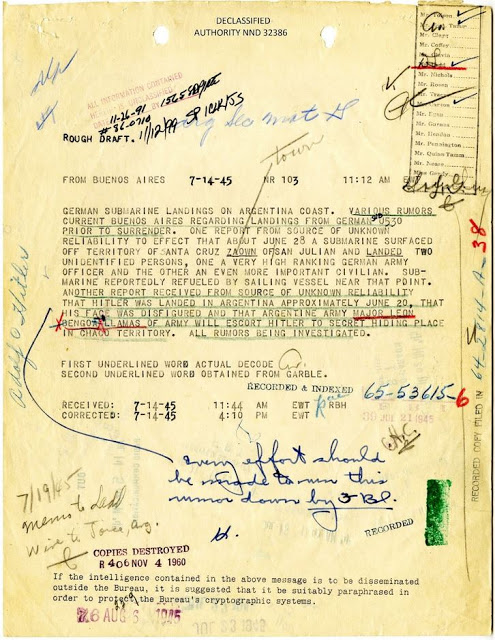 DECLASSIFIED
AUTHORITY NND 32386
Mr. Tolson
Mr. Clegg
Mr. Coffey
Mr. Nichols
Mr. Rosen
Mr. Egan
Mr. Hendon
Mr. Pennington
Mr. Quinn Tamm
Mr. Nease
ALL INFORMATION CONTAINED
11-26-91
11/12/99
ROUGH DRAFT.
town
FROM BUENOS AIRES 7-14-45 NR 103 11:12 AM
GERMAN SUBMARINE LANDINGS ON ARGENTINA COAST. VARIOUS RUMORS
CURRENT BUENOS AIRES REGARDING LANDINGS FROM GERMAN U530
PRIOR TO SURRENDER. ONE REPORT FROM SOURCE OF UNKNOWN
RELIABILITY TO EFFECT THAT ABOUT JUNE 28 A SUBMARINE SURFACED
OFF TERRITORY OF SANTA CRUZ ZAOWN OFSAN JULIAN AND LANDED TWO
UNIDENTIFIED PERSONS, ONE A VERY HIGH RANKING GERMAN ARMY
OFFICER AND THE OTHER AN EVEN MORE IMPORTANT CIVILIAN. SUB-
MARINE REPORTEDLY REFUELED BY SAILING VESSEL NEAR THAT POINT.
ANOTHER REPORT RECEIVED FROM SOURCE OF UNKNOWN RELIABILITY
THAT HITLER WAS LANDED IN ARGENTINA APPROXIMATELY JUNE 20, THAT
HIS FACE WAS DISFIGURED AND THAT ARGENTINE ARMY MAJOR LEON
BENGOALLAMAS OF ARMY WILL ESCORT HITLER TO SECRET HIDING PLACE
IN CHACO TERRITORY. ALL RUMORS BEING INVESTIGATED.
Adolf Hitler
FIRST UNDERLINED WORD ACTUAL DECODE
SECOND UNDERLINED WORD OBTAINED FROM GARBLE.
RECORDED & INDEXED
65-53615-6
RECEIVED: 7-14-45 11:44 AM EWT RBH
CORRECTED: 7-14-45 4:10 PM EWT
JUL 21 1945
RECORDED COPY FILED IN
38
every effort should
be made to run this
rumor down by F.B.I.
H.
7/19/45
Memo to Ladd
RECORDED
COPIES DESTROYED
R 406 NOV 4 1960
If the intelligence contained in the above message is to be disseminated
outside the Bureau, it is suggested that it be suitably paraphrased in
order to protect the Bureau's cryptographic systems.
AUG 6 1945